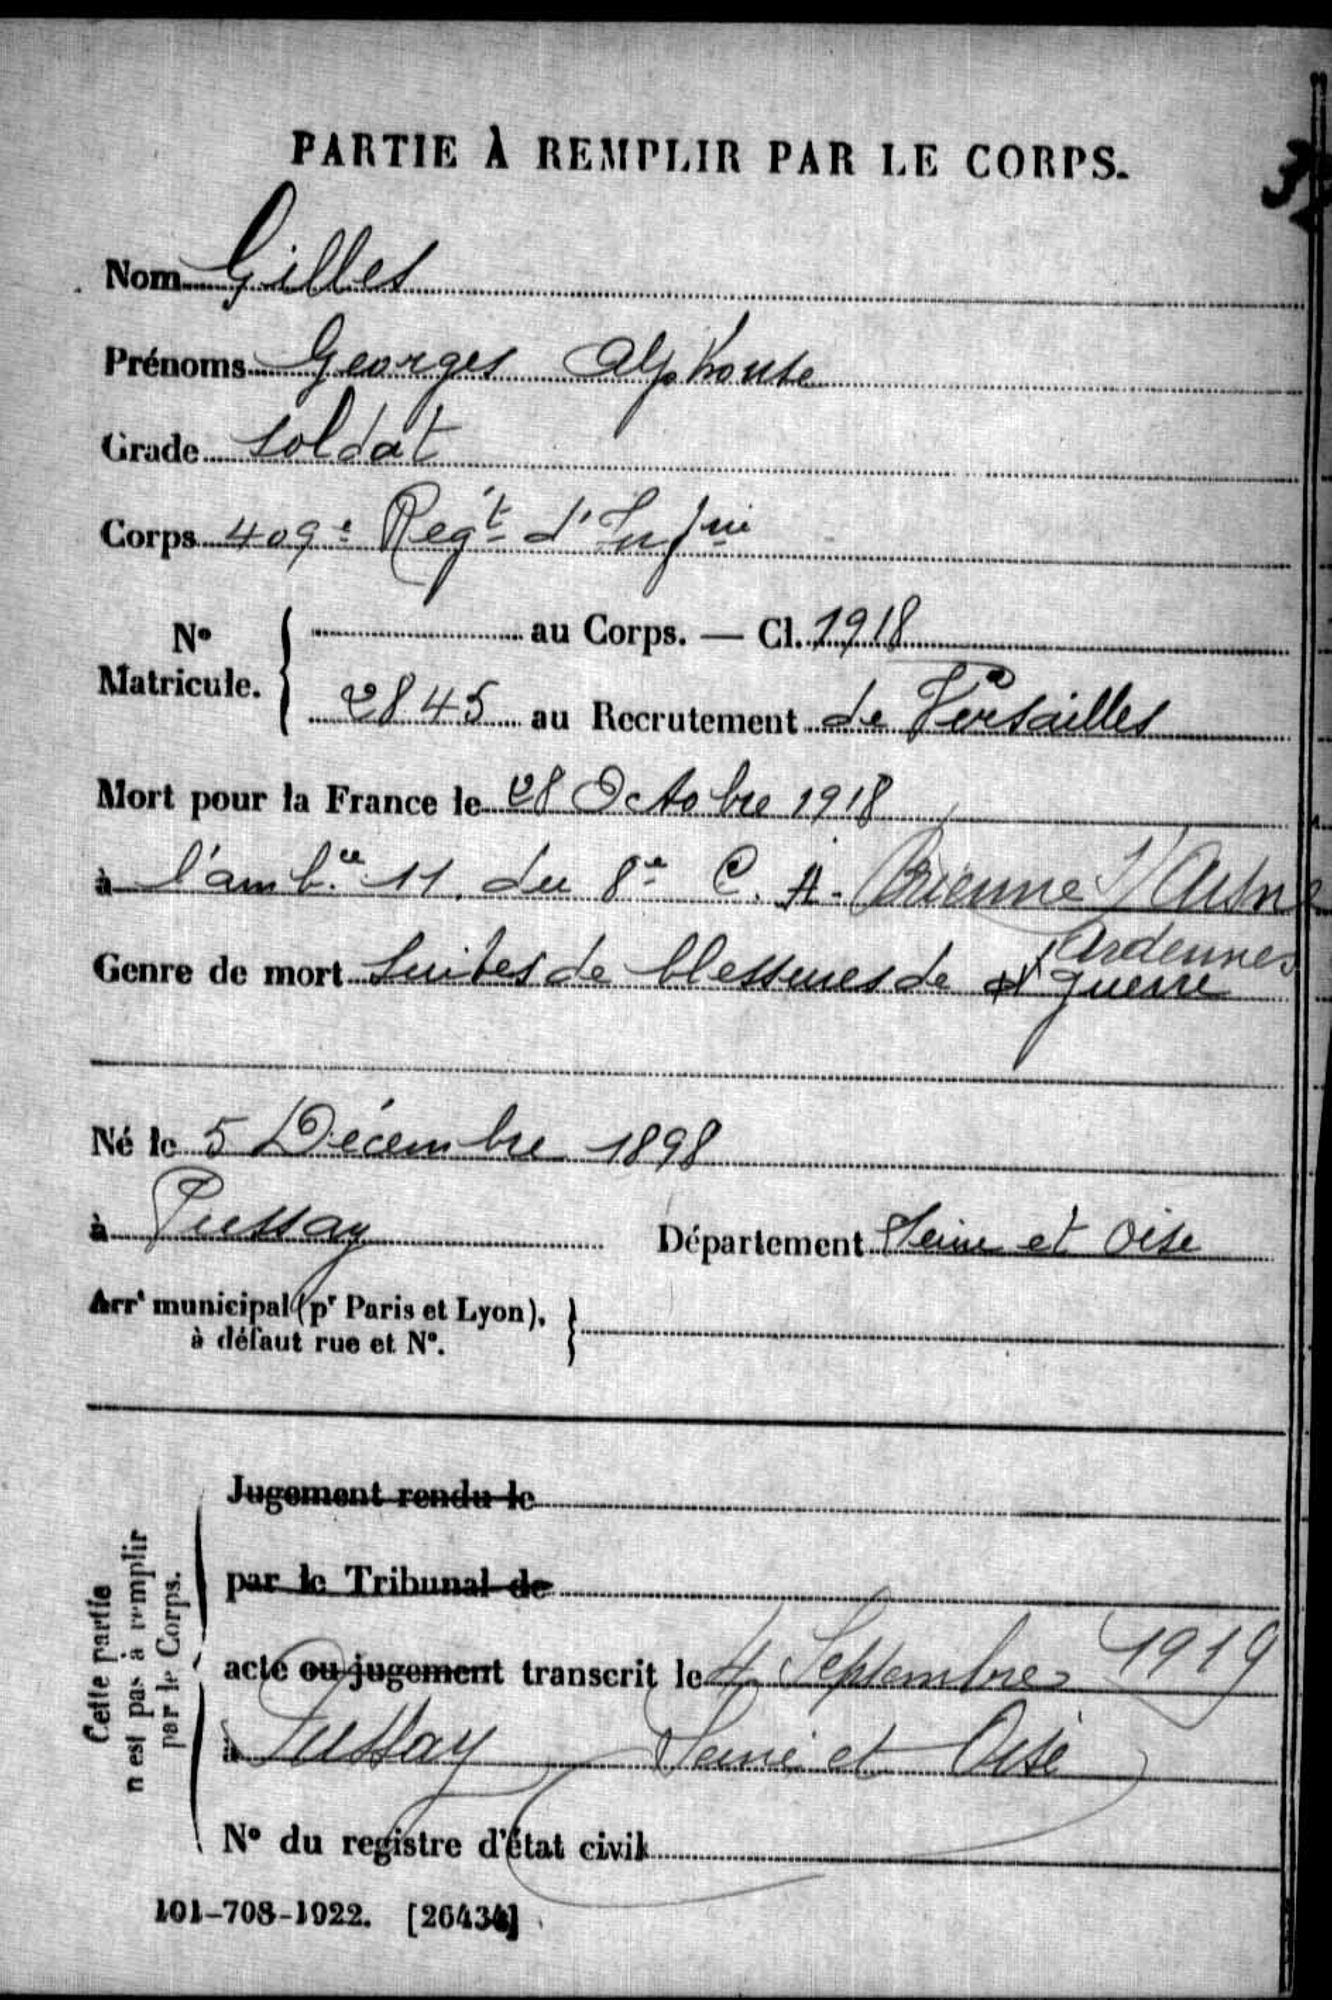 PARTIE À REMPLIR PAR LE CORPS.
Nom Gilles
Prénoms Georges Alphonse
Grade Soldat
Corps 409e Regt d'Infrie
No Matricule. { au Corps. — Cl. 1918
2845 au Recrutement de Versailles
Mort pour la France le 28 Octobre 1918
à l'ambce 11 du 8e C. A. Brienne s/ Aisne
Ardennes
Genre de mort Suites de blessures de guerre
Né le 5 Décembre 1898
à Pussay Département Seine et Oise
Arrt municipal (pr Paris et Lyon),
à défaut rue et No.
Cette partie
n'est pas à remplir
par le Corps.
Jugement rendu le
par le Tribunal de
acte ou jugement transcrit le 4 Septembre 1919
à Pussay Seine et Oise
No du registre d'état civil
101-708-1922. [26434]